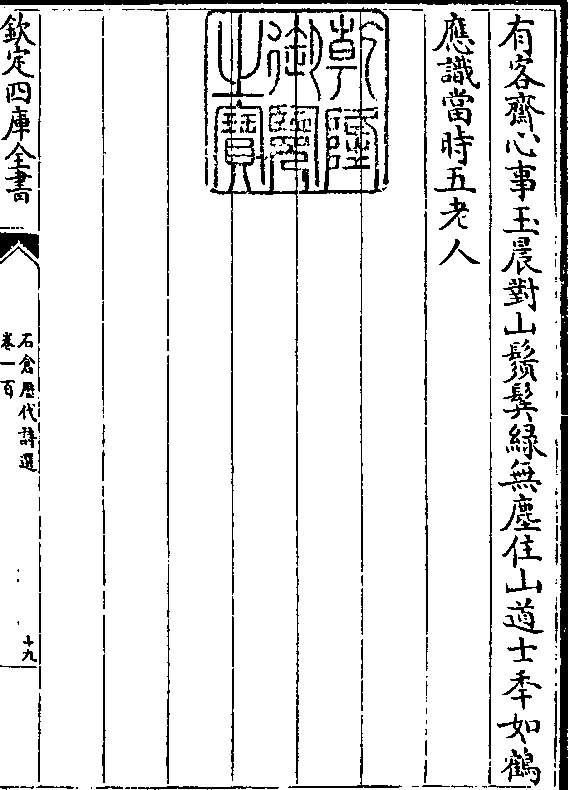 有客齋心事玉晨對山鬚鬂緑無塵住山道士秊如鶴
應識當時五老人
乾隆
御覽
之寶
欽定四庫全書
石倉歷代詩選
卷一百
十九